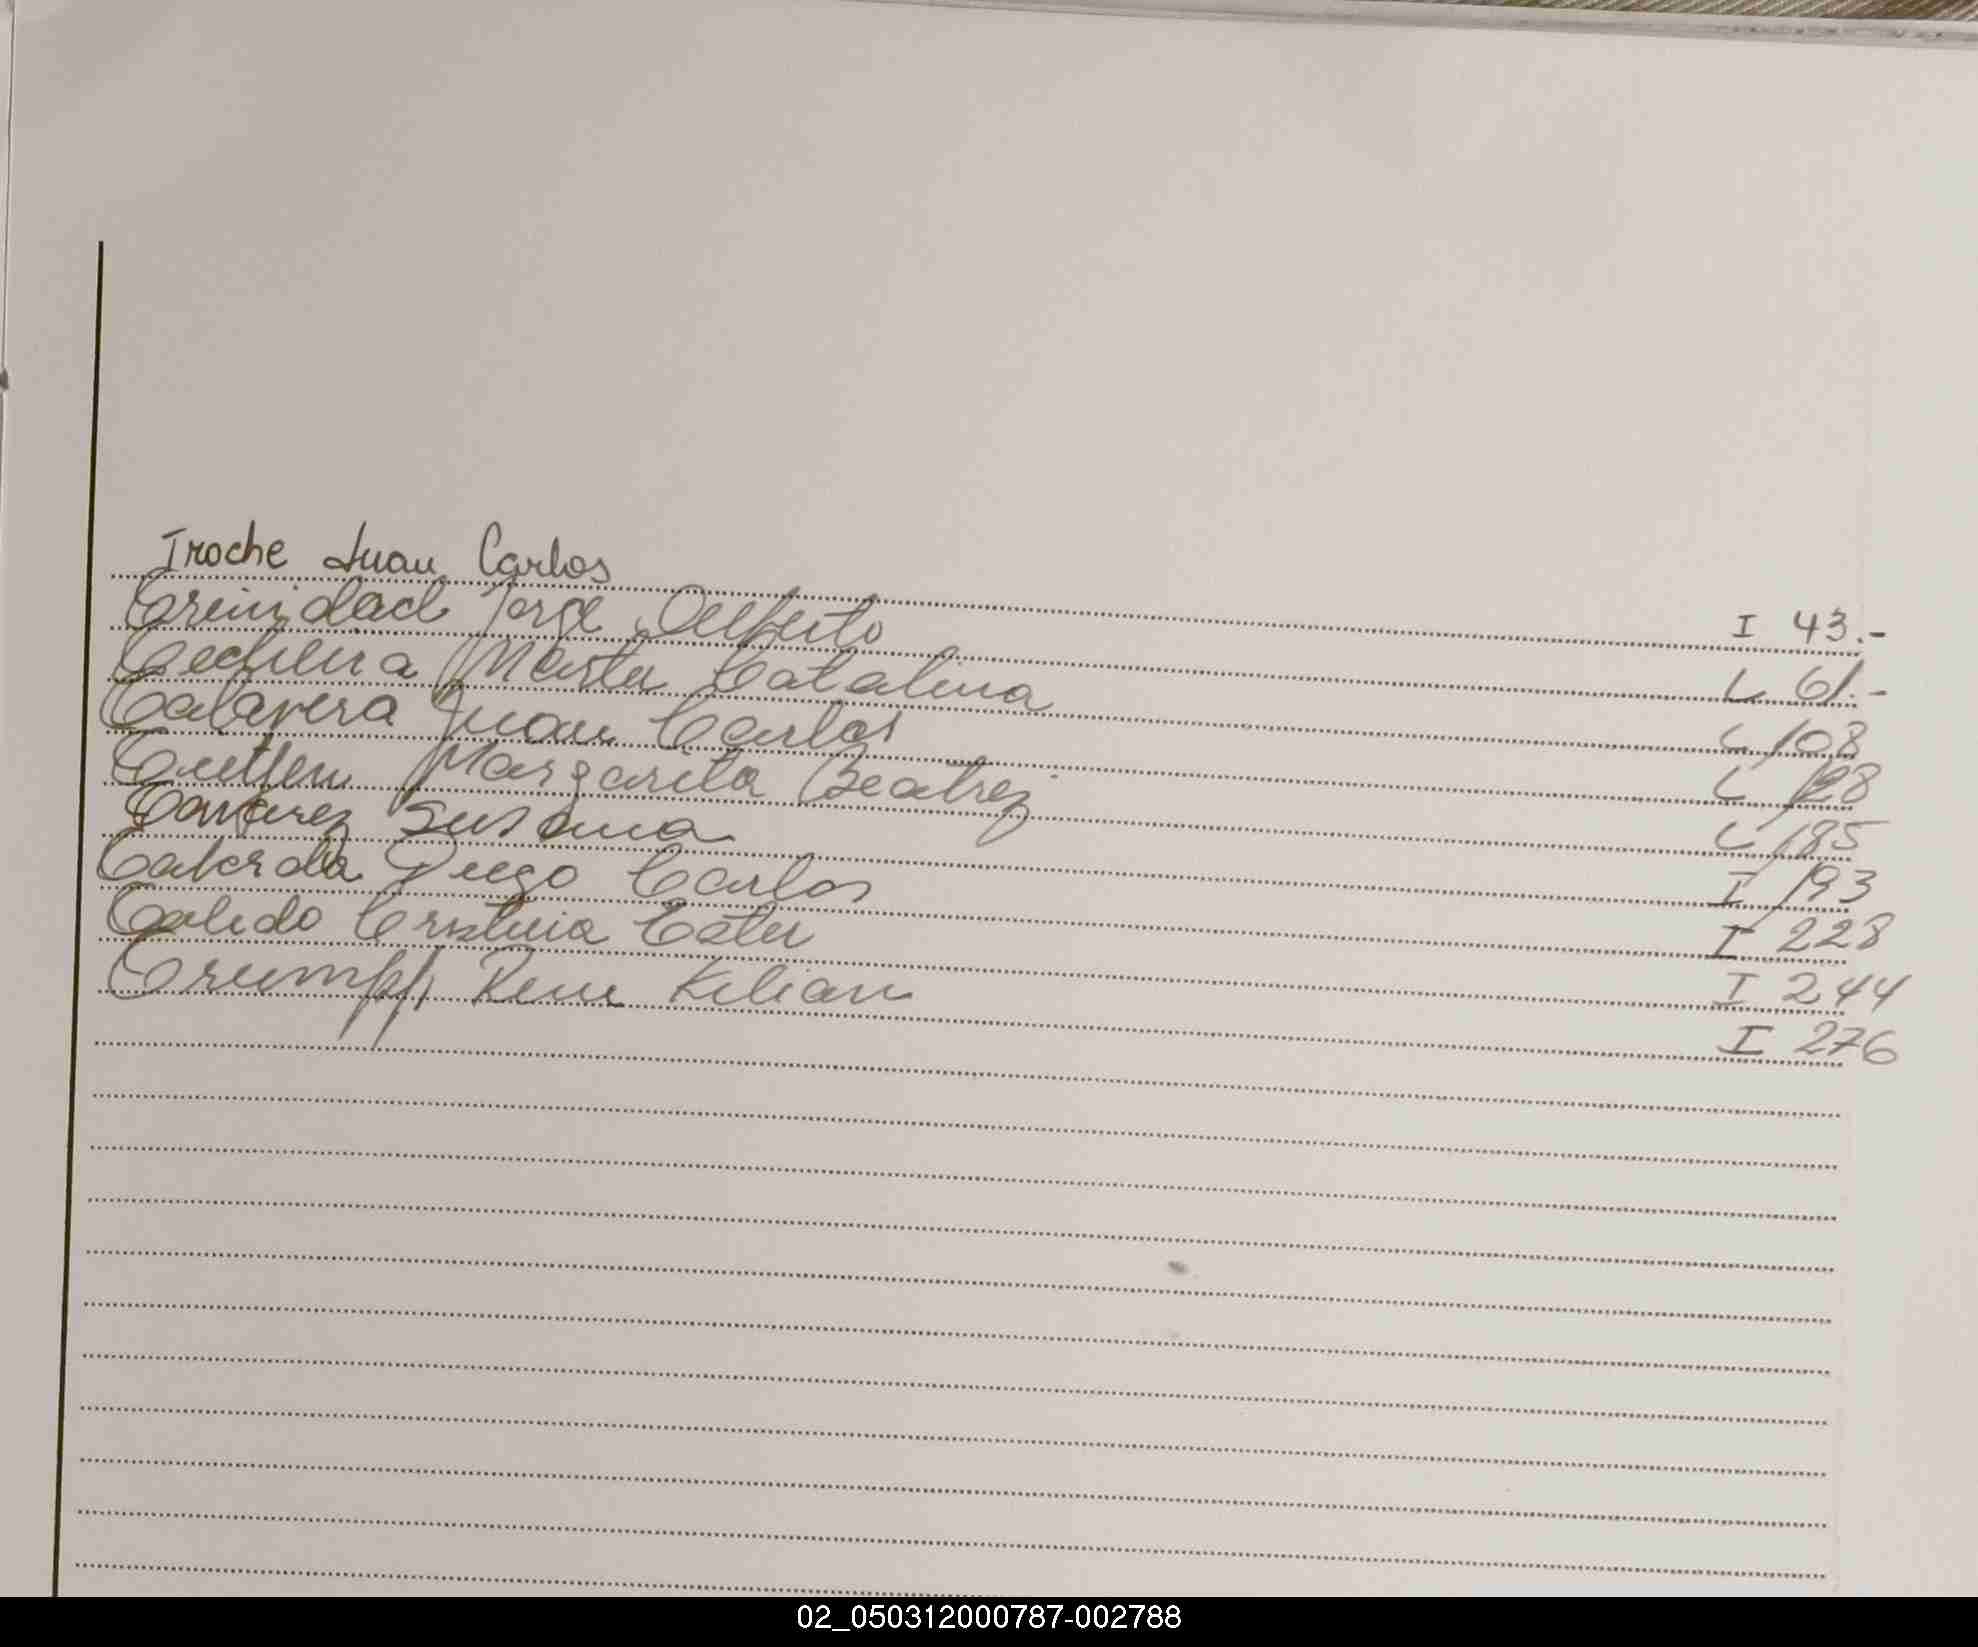 Troche Juan Carlos I 43.-
Trinidad Jorge Alberto I 61.-
Techeira Marta Catalina I 108
Talavera Juan Carlos I 128
Margarita Beatriz I 185
Susana I 193
Taborda Diego Carlos I 228
Toledo Cristina Ester I 244
Trumpp Rene Kilian I 276
02_050312000787-002788